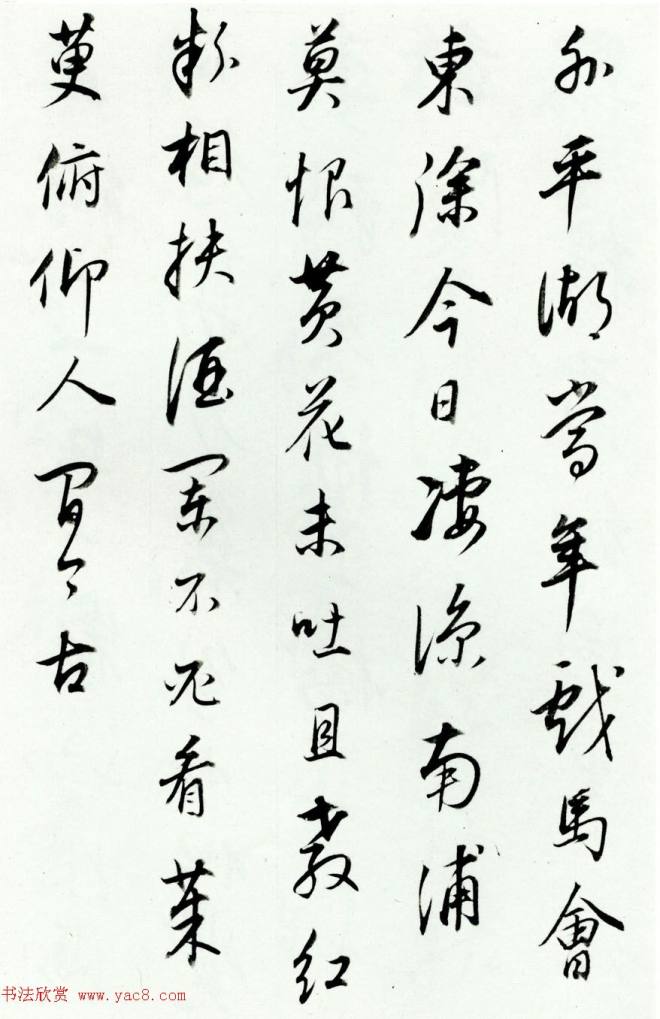 外平湖當年戲馬會
東徐今日淒涼南浦
莫恨黃花未吐且教紅
粉相扶酒闌不必看茱
萸俯仰人間今古
书法欣赏 www.yac8.com